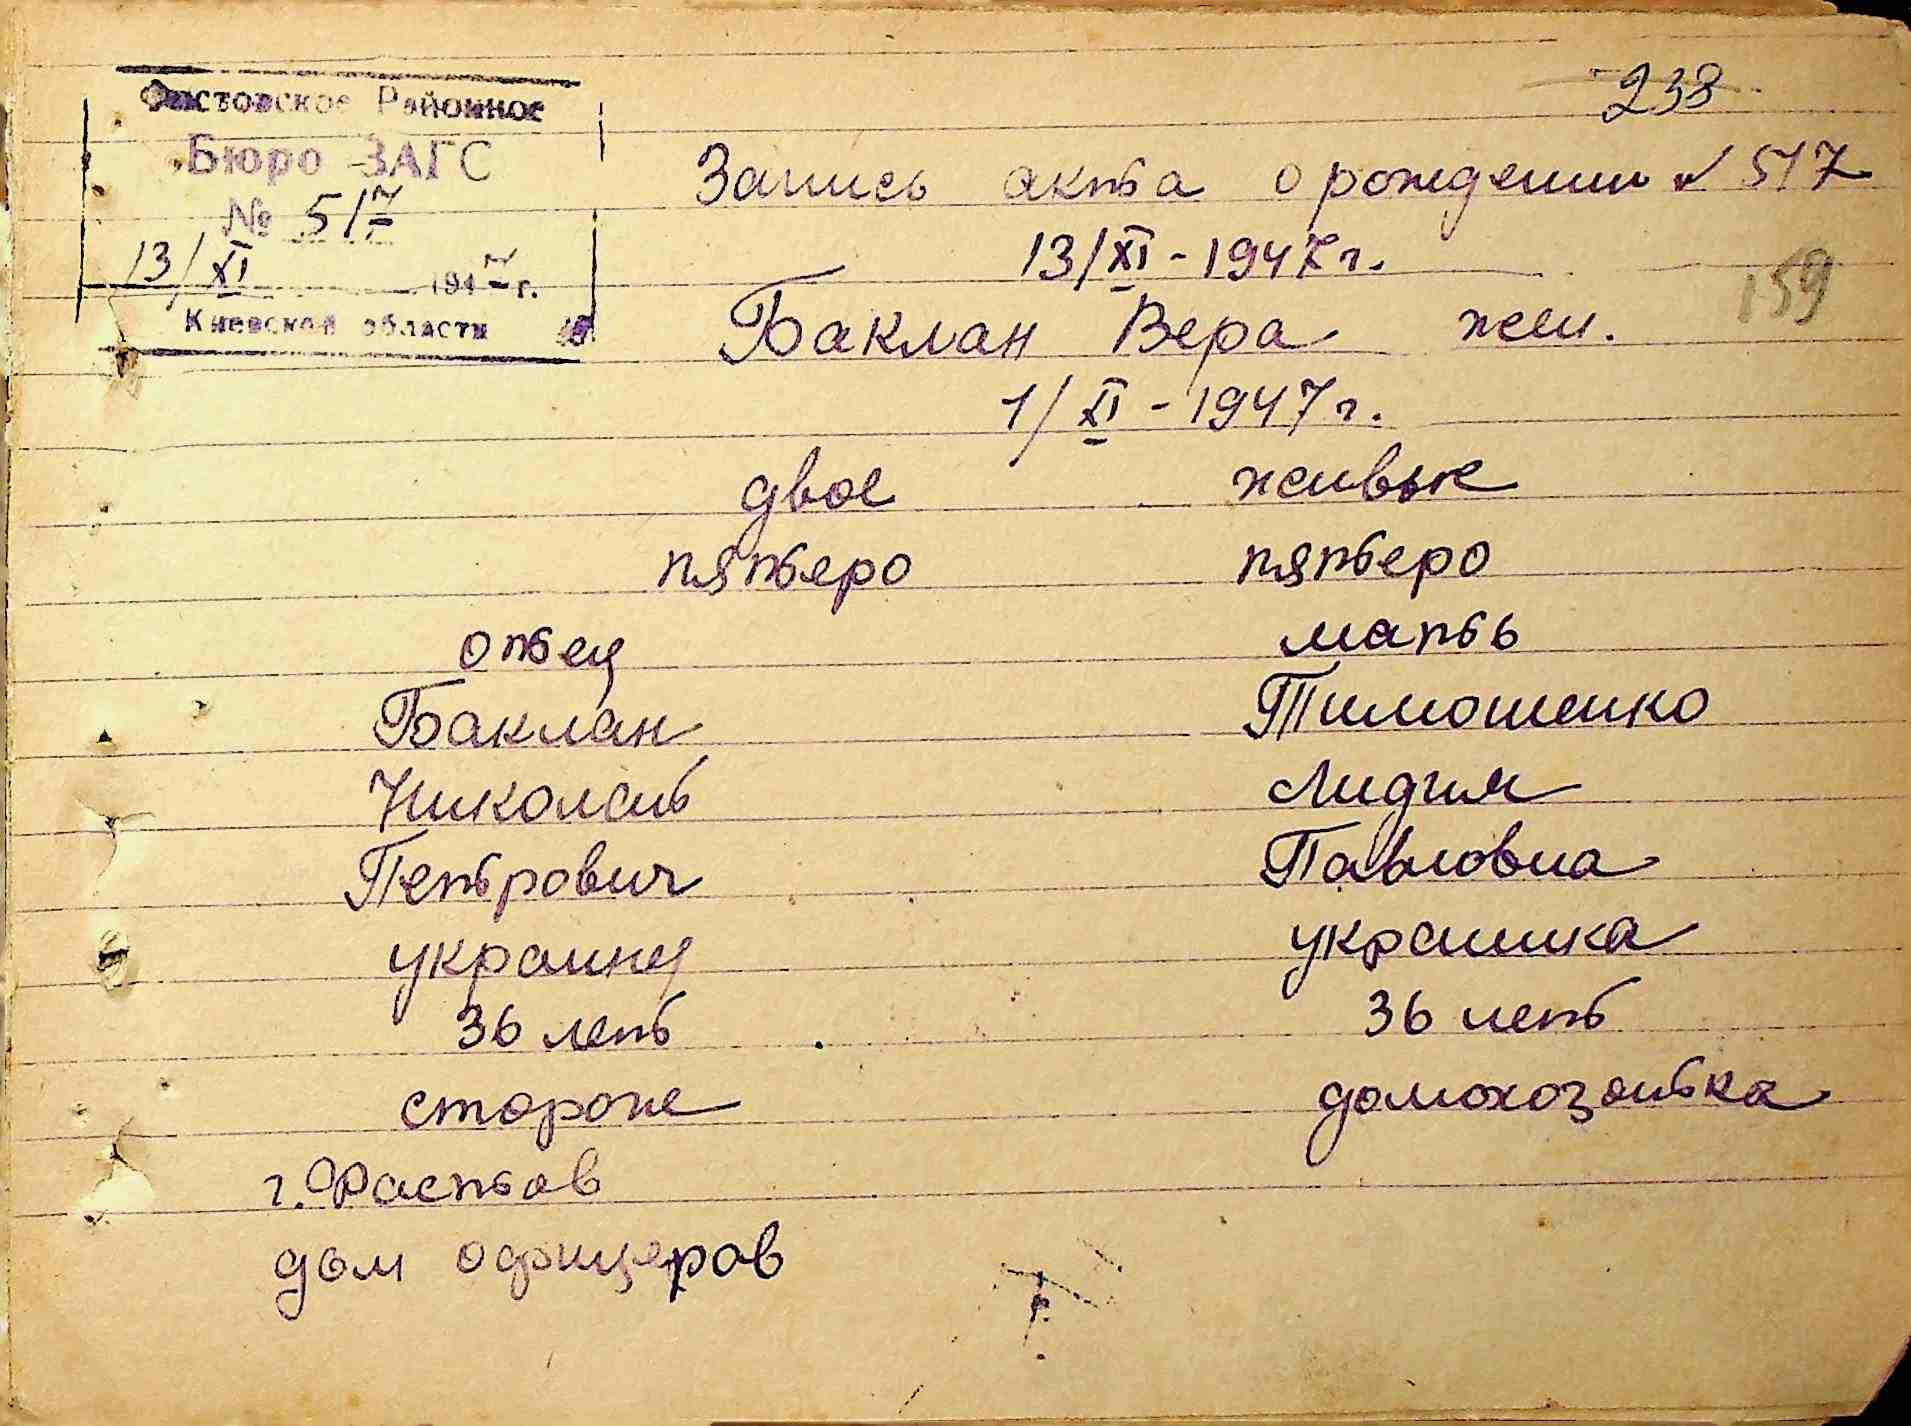 238
Фастовское Районное
Бюро ЗАГС
№ 517
13/XI 1947 г.
Киевской области
Запись акта о рождении № 517
13/XI - 1947 г.
159
Баклан Вера жен.
1/XI - 1947 г.
двое живые
пятеро пятеро
отец мать
Баклан Тимошенко
Николай Лидия
Петрович Павловна
украинец украинка
36 лет 36 лет
стороже домохозяйка
г. Фастов
дом офицеров
г.